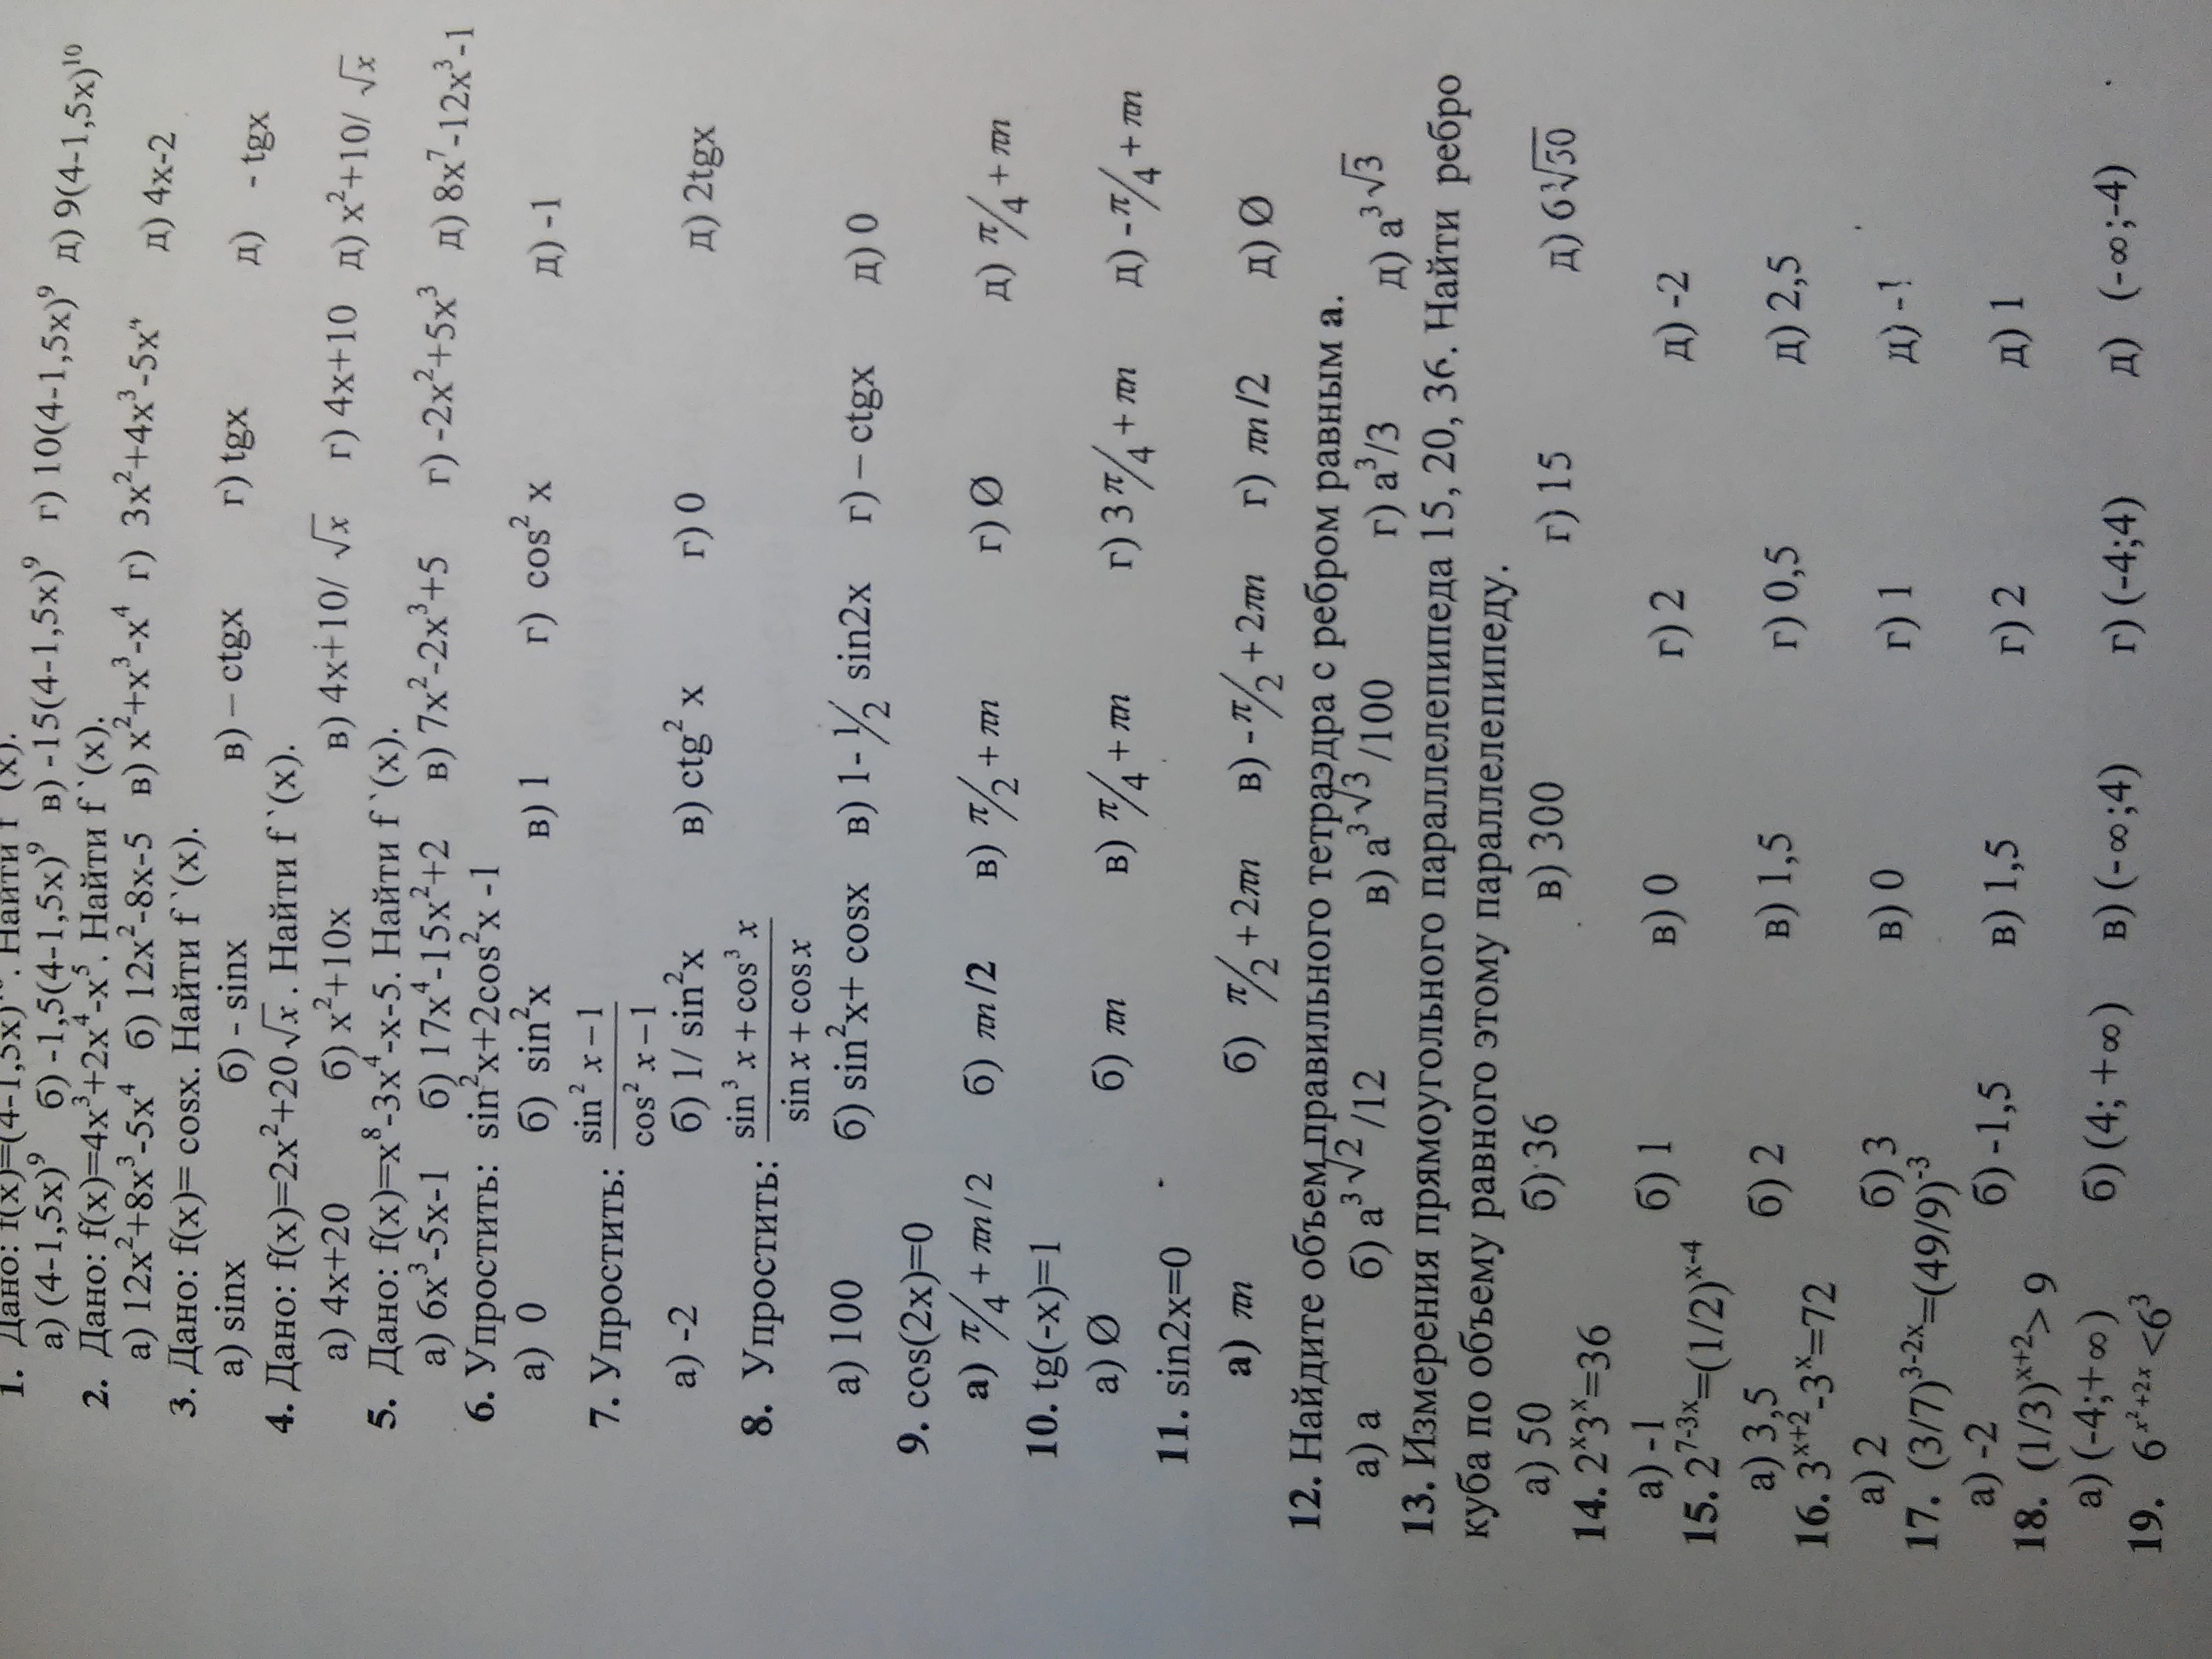 1. Дано: f(x)=(4-1,5x)¹⁰. Найти f `(x).
а) (4-1,5x)⁹ б) -1,5(4-1,5x)⁹ в) -15(4-1,5x)⁹ г) 10(4-1,5x)⁹ д) 9(4-1,5x)¹⁰
2. Дано: f(x)=4x³+2x⁴-x⁵. Найти f `(x).
а) 12x²+8x³-5x⁴ б) 12x²-8x-5 в) x²+x³-x⁴ г) 3x²+4x³-5x⁴ д) 4x-2
3. Дано: f(x)= cosx. Найти f `(x).
а) sinx б) - sinx в) – ctgx г) tgx д) - tgx
4. Дано: f(x)=2x²+20√x. Найти f `(x).
а) 4x+20 б) x²+10x в) 4x+10/ √x г) 4x+10 д) x²+10/ √x
5. Дано: f(x)=x⁸-3x⁴-x-5. Найти f `(x).
а) 6x³-5x-1 б) 17x⁴-15x²+2 в) 7x²-2x³+5 г) -2x²+5x³ д) 8x⁷-12x³-1
6. Упростить: sin²x+2cos²x -1
а) 0 б) sin²x в) 1 г) cos² x д) -1
7. Упростить: (sin² x – 1)/(cos² x – 1)
а) -2 б) 1/ sin²x в) ctg² x г) 0 д) 2tgx
8. Упростить: (sin³ x + cos³ x)/(sin x + cos x)
а) 100 б) sin²x+ cosx в) 1- 1/2 sin2x г) – ctgx д) 0
9. cos(2x)=0
а) π/4 + πn/2 б) πn/2 в) π/2 + πn г) Ø д) π/4 + πn
10. tg(-x)=1
а) Ø б) πn в) π/4 + πn г) 3π/4 + πn д) -π/4 + πn
11. sin2x=0
а) πn б) π/2 + 2πn в) -π/2 + 2πn г) πn/2 д) Ø
12. Найдите объем правильного тетраэдра с ребром равным а.
а) a б) a³√2 /12 в) a³√3 /100 г) a³/3 д) a³√3
13. Измерения прямоугольного параллелепипеда 15, 20, 36. Найти ребро
куба по объему равного этому параллелепипеду.
а) 50 б) 36 в) 300 г) 15 д) 6∛50
14. 2ˣ3ˣ=36
а) -1 б) 1 в) 0 г) 2 д) -2
15. 2⁷⁻³ˣ=(1/2)ˣ⁻⁴
а) 3,5 б) 2 в) 1,5 г) 0,5 д) 2,5
16. 3ˣ⁺²-3ˣ=72
а) 2 б) 3 в) 0 г) 1 д) -1
17. (3/7)³⁻²ˣ=(49/9)⁻³
а) -2 б) -1,5 в) 1,5 г) 2 д) 1
18. (1/3)ˣ⁺²> 9
а) (-4;+∞) б) (4; +∞) в) (-∞;4) г) (-4;4) д) (-∞;-4)
19. 6^(x²+2x) <6³